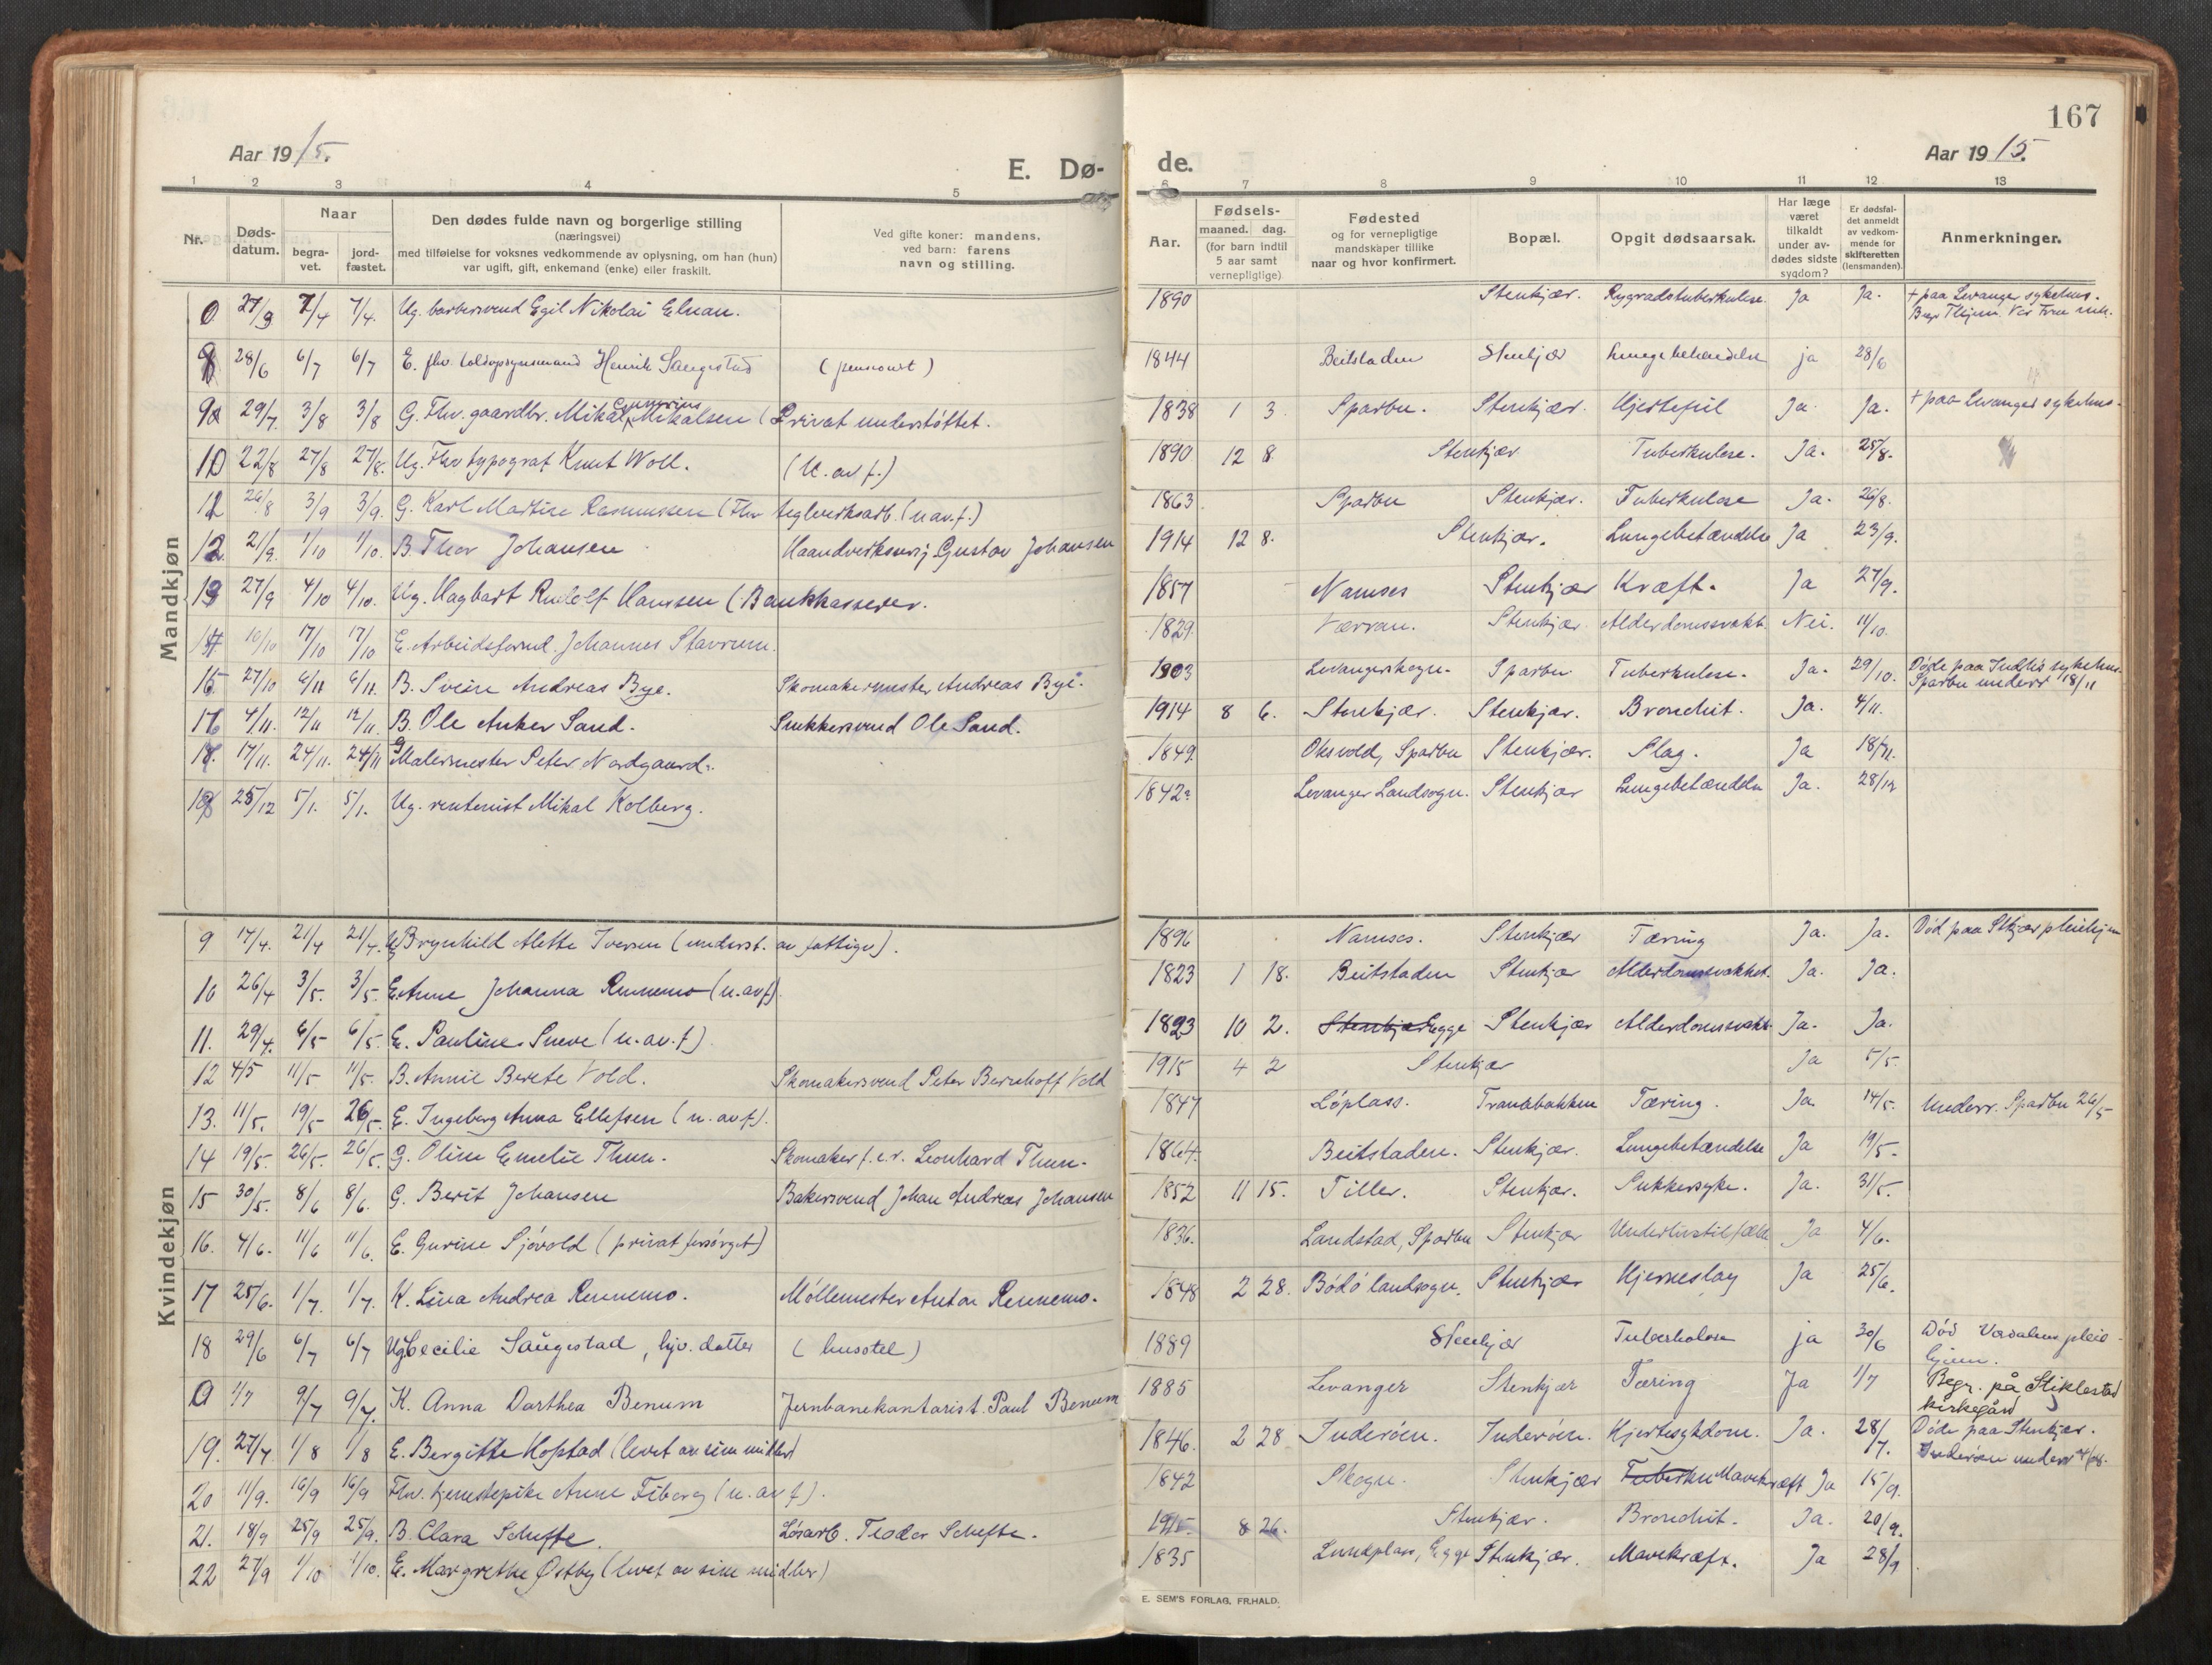 167
Aar 1915.
E. Dø-
de.
Aar 1915.
1 2 3 4 5 6 7 8 9 10 11 12 13
Nr.
Døds-
datum.
Naar
begra-
vet.
jord-
fæstet.
Den dødes fulde navn og borgerlige stilling
(næringsvei)
med tilføielse for voksnes vedkommende av oplysning, om han (hun)
var ugift, gift, enkemand (enke) eller fraskilt.
Ved gifte koner: mandens,
ved barn: farens
navn og stilling.
Aar.
Fødsels-
maaned. dag.
(for barn indtil
5 aar samt
vernepligtige)
Fødested
og for vernepligtige
mandskaper tillike
naar og hvor konfirmert.
Bopæl.
Opgit dødsaarsak.
Har læge
været
tilkaldt
under av-
dødes sidste
sygdom?
Er dødsfal-
det anmeldt
av vedkom-
mende for
skifteretten
(lensmanden).
Anmerkninger.
Mandkjøn
0 27/3 7/4 7/4. Ug. barbersvend Egil Nikolai Elnan. 1890 Stenkjær. Rygradstuberkulose. Ja Ja. + paa Levanger sykehus.
28/6 6/7 6/7 E. fhv. toldopsynsmand Henrik Saugestad (pensionist) 1844 Beitstaden Stenkjær Lungebetændelse ja 28/6
9 29/7 3/8 3/8 G. Fhv. gaardbr. Mikal Mikalsen (Privat understøttet. 1838 1 3. Sparbu. Stenkjær. Hjertefeil Ja. Ja. + paa Levanger sykehus.
10 22/8 27/8 27/8. Ug. Fhv typograf Knut Woll. (U. av f.) 1890 12 8 Stenkjær Tuberkulose. Ja. 25/8.
26/8 3/9 3/9. G. Karl Martin Rasmussen (Fhv teglverksarb. (u av. f.) 1863 Sparbu Stenkjær. Tuberkulose Ja. 26/8.
12 21/9. 1/10 1/10. B. Thor Johansen Haandverkssvej Gustav Johansen 1914 12 8. Stenkjær. Lungebetændelse Ja 23/9.
13 27/9 4/10 4/10. Ug. Hagbart Rudolf Hanssen (Bankkasserer. 1857 Namsos Stenkjær Kræft. Ja 27/9.
14 10/10 17/10 17/10 E. Arbeidsformd. Johannes Stavrum. 1829. Værran. Stenkjær. Alderdomssvakh. Nei. 11/10.
15 27/10 6/11 6/11. B. Svein Andreas Bye. Skomakermester Andreas Bye. 1903 Levangerskogn. Sparbu Tuberkulose. Ja. 29/10. Døde paa Indh's sykehus.
Sparbu underr 18/11
16 4/11. 12/11 12/11. B. Ole Anker Sand. Snekkersvend Ole Sand. 1914 8 6. Stenkjær. Stenkjær. Bronchit. Ja. 4/11.
17/11. 24/11. 24/11 G Malermester Peter Nordgaard. 1849. Oksvold, Sparbu Stenkjær. Slag. Ja 18/11.
25/12 5/1. 5/1. Ug. rentenist Mikal Kolberg. 1842 Levanger Landsogn. Stenkjær Lungebetændelse Ja. 28/12
Kvindekjøn
9 17/4. 21/4 21/4. U Brynhild Alette Iversen (underst. av fattigv). 1896 Namsos. Stenkjær Tæring Ja. Ja. Död paa Stkjær pleiehjem
10 26/4 3/5. 3/5. E. Anne Johanna Rennemo (u. av f). 1823 1 18. Beitstaden Stenkjær Alderdomssvakhet. Ja. Ja.
11. 29/4. 6/5 6/5. E. Pauline Sneve (u. av. f) 1823 10 2. Stenkjær Egge Stenkjær Alderdomssvakh. Ja. Ja.
12 4/5 11/5 11/5. B. Annie Berete Vold. Skomakersvend Peter Bernhoff Vold 1915 4 2 Stenkjær Ja 5/5.
13. 11/5. 19/5 26/5. E. Ingeborg Anna Ellefsen (u. av f). 1847 Löplass. Tranabakken Tæring. Ja. 14/5. Underr. Sparbu 26/5
14 19/5. 26/5. 26/5. G. Oline Emelie Thun. Skomaker f. e. r. Leonhard Thun. 1864. Beitstaden. Stenkjær. Lungebetændelse Ja 19/5.
15 30/5. 8/6 8/6. G. Berit Johansen Bakersvend Johan Andreas Johansen 1852 11 15. Tiller. Stenkjær. Sukkersyke. Ja. 31/5.
16. 4/6. 11/6 11/6. E. Gurine Sjövold (privat forsörget) 1836. Landstad, Sparbu Stenkjær Ja 4/6.
17 25/6. 1/7. 1/7. K. Lina Andrea Rennemo. Møllemester Anton Rennemo. 1848 2 28. Bodö landsogn. Stenkjær Hjerneslag Ja 25/6.
18 29/6 6/7 6/7 Ug Cecilie Saugestad, hjv. datter (husstel) 1889 Stenkjær Tuberkulose ja 30/6 Död Verdalens pleie-
hjem.
0 1/7 9/7 9/7. K. Anna Dorthea Benum Jernbanekontorist. Paul Benum 1885 Levanger Stenkjær Tæring Ja 1/7 Begr. på Stiklestad
kirkegård
19. 27/7 1/8 1/8 E. Bergitte Hofstad (levet av sine midler) 1846. 2 28 Inderöen. Inderöen. Hjertesykdom. Ja. 28/7. Döde paa Stenkjær.
Inderöen underr 4/8.
20 11/9. 16/9 16/9 Fhv. tjenestepike Anne Fiborg (u. av f). 1842 Skogn. Stenkjær Tuberku Mavekræft Ja 15/9.
21. 18/9 25/9 25/9. B. Clara Schefte. Løsarb. Teodor Schefte. 1915 8 26. Stenkjær. Bronchit. Ja. 20/9.
22 27/9 1/10 1/10. E. Margrethe Østby (levet av sine midler) 1835 Lundplass, Egge Stenkjær. Mavekræft. Ja 28/9
E. SEM'S FORLAG, FR.HALD.